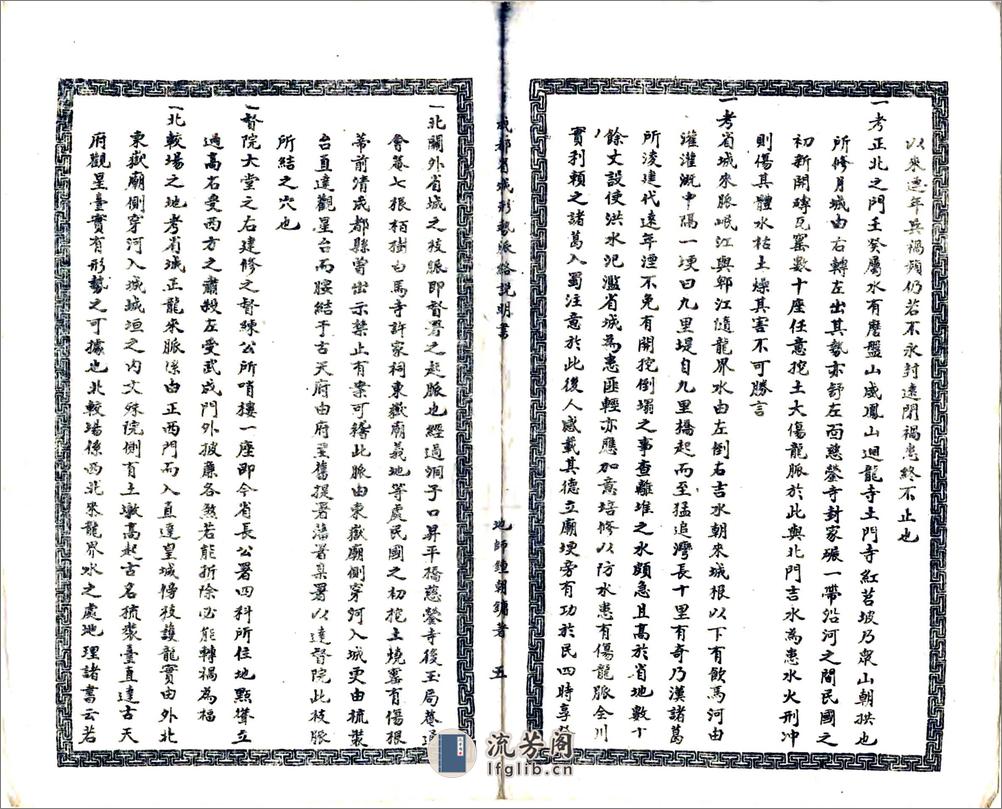 以來連年兵禍頻仍若不永封遠閉禍患終不止也
一考正北之門壬癸屬水有磨盤山威鳳山迴龍寺土門寺紅苕坡乃衆山朝拱也
所修月城由右轉左出其勢亦舒左面慈鎣寺封家碾一帶沿河之間民國之
初新開磚瓦窰數十座任意挖土大傷龍脈於此與北門吉水為患水火刑冲
則傷其體水枯土燥其害不可勝言
一考省城來脈岷江與郫江隨龍界水由左倒右吉水朝來城根以下有飲馬河由
灌灌溉中隔一埂曰九里堤自九里橋起而至猛追灣長十里有奇乃漢諸葛
所淩建代遠年湮不免有開挖倒塌之事查離堆之水頗急且高於省地數十
餘丈設使洪水汜濫省城為患匪輕亦應加意培修以防水患有傷龍脈全川
實利賴之諸葛入蜀注意於此後人感載其德立廟埂旁有功於民四時享
成都省城形勢脈絡說明書
地師鍾朝鏞著
五
一北關外省城之枝脈即督署之起脈也經過洞子口昇平橋慈鎣寺後玉局菴
會菴七根栢樹白馬寺許家祠東嶽廟義地等處民國之初挖土燒窰有傷根
蒂前清成都縣曾出示禁止有案可稽此脈由東嶽廟側穿河入城更由梳裝
台直達觀星台而胺結于古天府由府至舊提署藩署臬署以達督院此枝脈
所結之穴也
一督院大堂之右建修之督練公所哨樓一座即今省長公署四科所住地點聳立
過高右受西方之肅殺左受武成門外披廉各煞若能折除必能轉禍為福
一北較場之地考省城正龍來脈係由正西門而入直達皇城傍枝護龍實由外北
東嶽廟側穿河入城城垣之內文殊院側有土墩高起古名梳裝臺直達古天
府觀星臺實有形勢之可據也北較場係西北來龍界水之處地理諸書云若
流芳阁
lfglib.cn